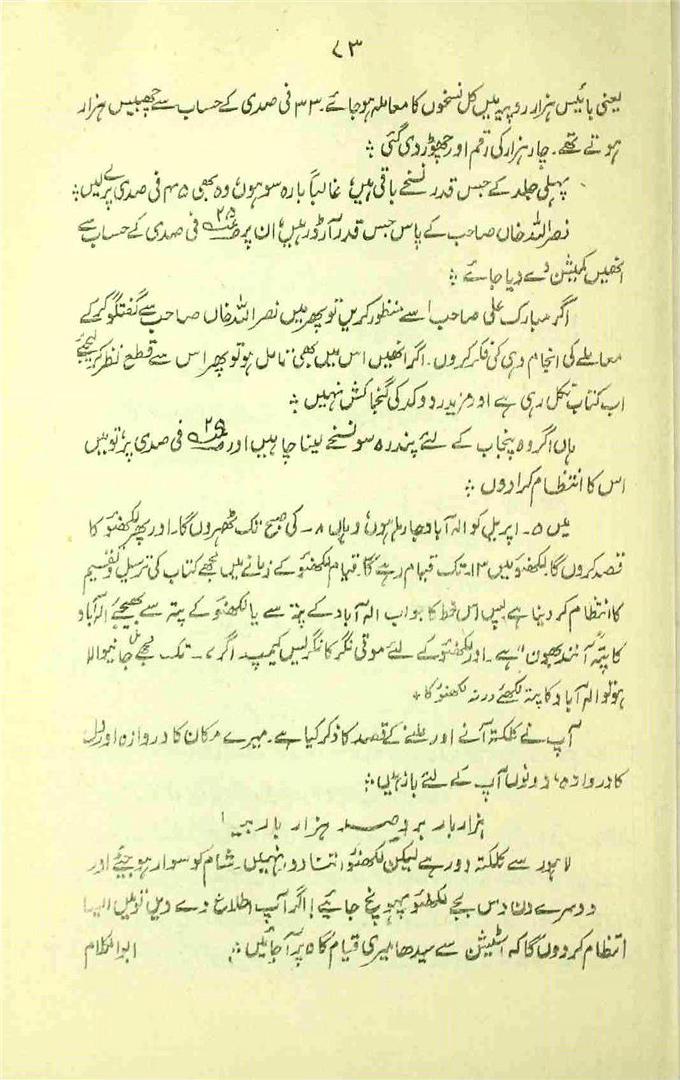 ۸۳
یعنی بائیس ہزار روپیہ میں کل نسخوں کا معاملہ ہوجائے۔ ۳۳ فی صدی کے حساب سے چھبیس ہزار
ہوتے تھے۔ چار ہزار کی رقم اور چھوڑ دی گئی ؞
پہلی جلد کے جس قدر نسخے باقی ہیں، غالباً بارہ سو ہوں، وہ بھی ۴۵ فی صدی پر لے لیں؞
نصر اللہ خاں صاحب کے پاس جس قدر آرڈر ہیں، ان پر ۲۵ فی صدی کے حساب سے
انھیں کمیشن دے دیا جائے ؞
اگر مبارک علی صاحب اسے منظور کریں تو پھر میں نصر اللہ خاں صاحب سے گفتگو کر کے
معاملے کی انجام دہی کی فکر کروں۔ اگر انھیں اس میں بھی تامل ہو تو پھر اس سے قطع نظر کر لیجئے
اب کتاب نکل رہی ہے اور مزید رد و کد کی گنجائش نہیں ؞
ہاں اگر وہ پنجاب کے لئے پندرہ سو نسخے لینا چاہیں اور ۲۵ فی صدی پر، تو میں
اس کا انتظام کرا دوں ؞
میں ۵۔ اپریل کو الہ آباد جا رہا ہوں، وہاں ۸۔ کی صبح تک ٹھہروں گا۔ اور پھر لکھنؤ کا
قصد کروں گا۔ لکھنؤ میں ۱۳۔ تک قیام رہے گا۔ قیام لکھنؤ کے زمانے میں مجھے کتاب کی ترسیل و تقسیم
کا انتظام کر دینا ہے پس اس خط کا جواب الہ آباد کے پتہ سے یا لکھنؤ کے پتہ سے بھیجئے الہ آباد
کا پتہ "آنند بھون" ہے۔ اور لکھنؤ کے لئے موتی نگر کانگریس کیمپ۔ اگر ۷۔ تک مجھے مل جانیوالا
ہو تو الہ آباد کا پتہ لکھئے ورنہ لکھنؤ کا ۔
آپ نے کلکتہ آنے اور ملنے کے قصد کا ذکر کیا ہے۔ میرے مکان کا دروازہ اور دل
کا دروازہ، دونوں آپ کے لئے باز ہیں؞
ہزار بار برو صد ہزار بار بیا!
لاہور سے کلکتہ دور ہے لیکن لکھنؤ اتنا دور نہیں۔ شام کو سوار ہو جئے اور
دوسرے دن دس بجے لکھنؤ پہونچ جائیے! اگر آپ اطلاع دے دیں تو میں ایسا
انتظام کر دوں گا کہ اسٹیشن سے سیدھا میری قیام گاہ پر آ جائیں ؞ ابوالکلام